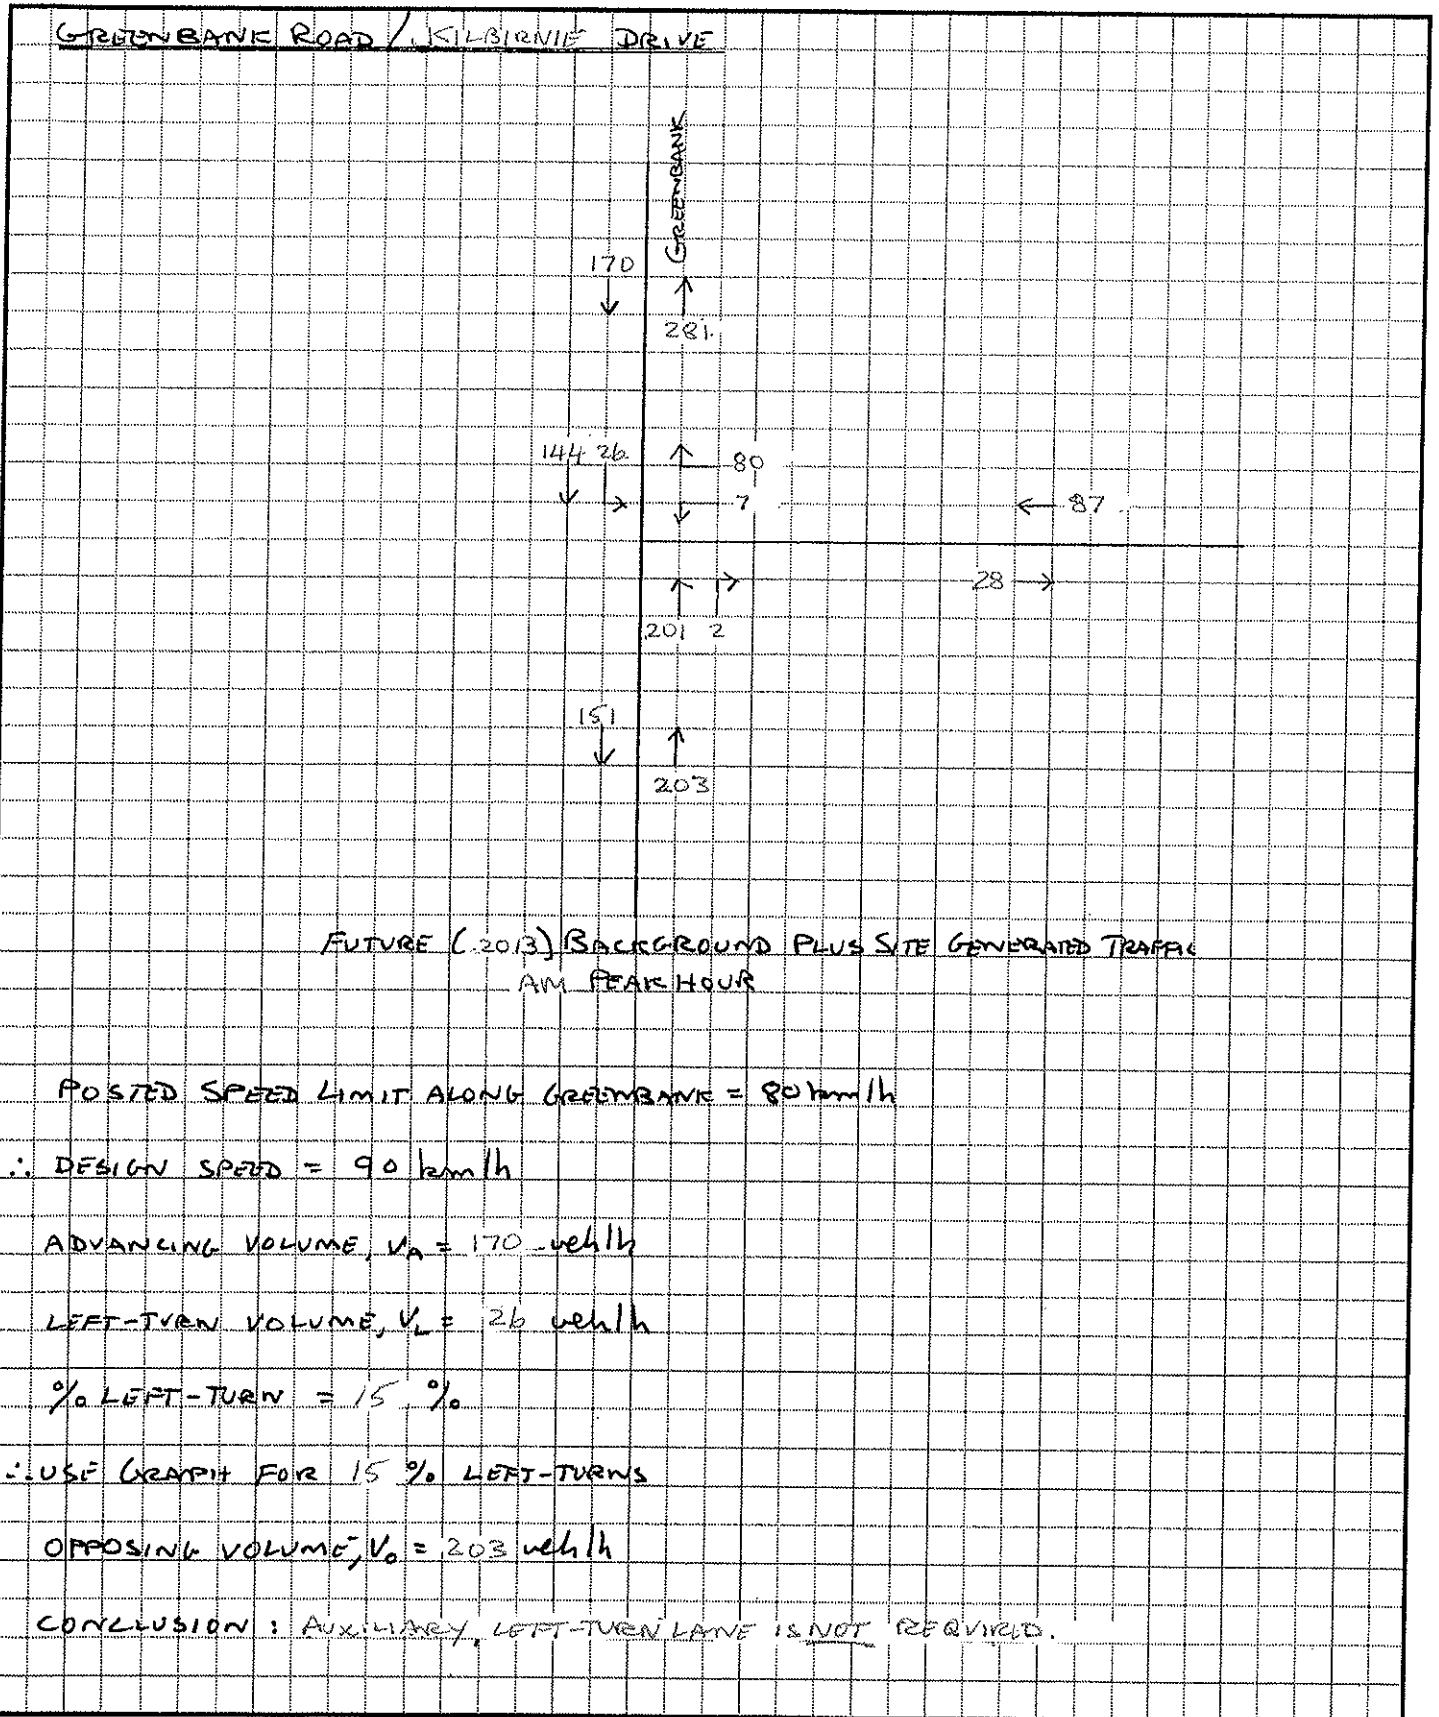 GREENBANK ROAD / KILBIRNIE DRIVE
GREENBANK
170
281
144 26 80
7 87
28
201 2
151
203
FUTURE (2013) BACKGROUND PLUS SITE GENERATED TRAFFIC
AM PEAK HOUR
POSTED SPEED LIMIT ALONG GREENBANK = 80 km/h
∴ DESIGN SPEED = 90 km/h
ADVANCING VOLUME, VA = 170 veh/h
LEFT-TURN VOLUME, VL = 26 veh/h
% LEFT-TURN = 15 %
∴ USE GRAPH FOR 15 % LEFT-TURNS
OPPOSING VOLUME, Vo = 203 veh/h
CONCLUSION : AUXILIARY LEFT-TURN LANE IS NOT REQUIRED.